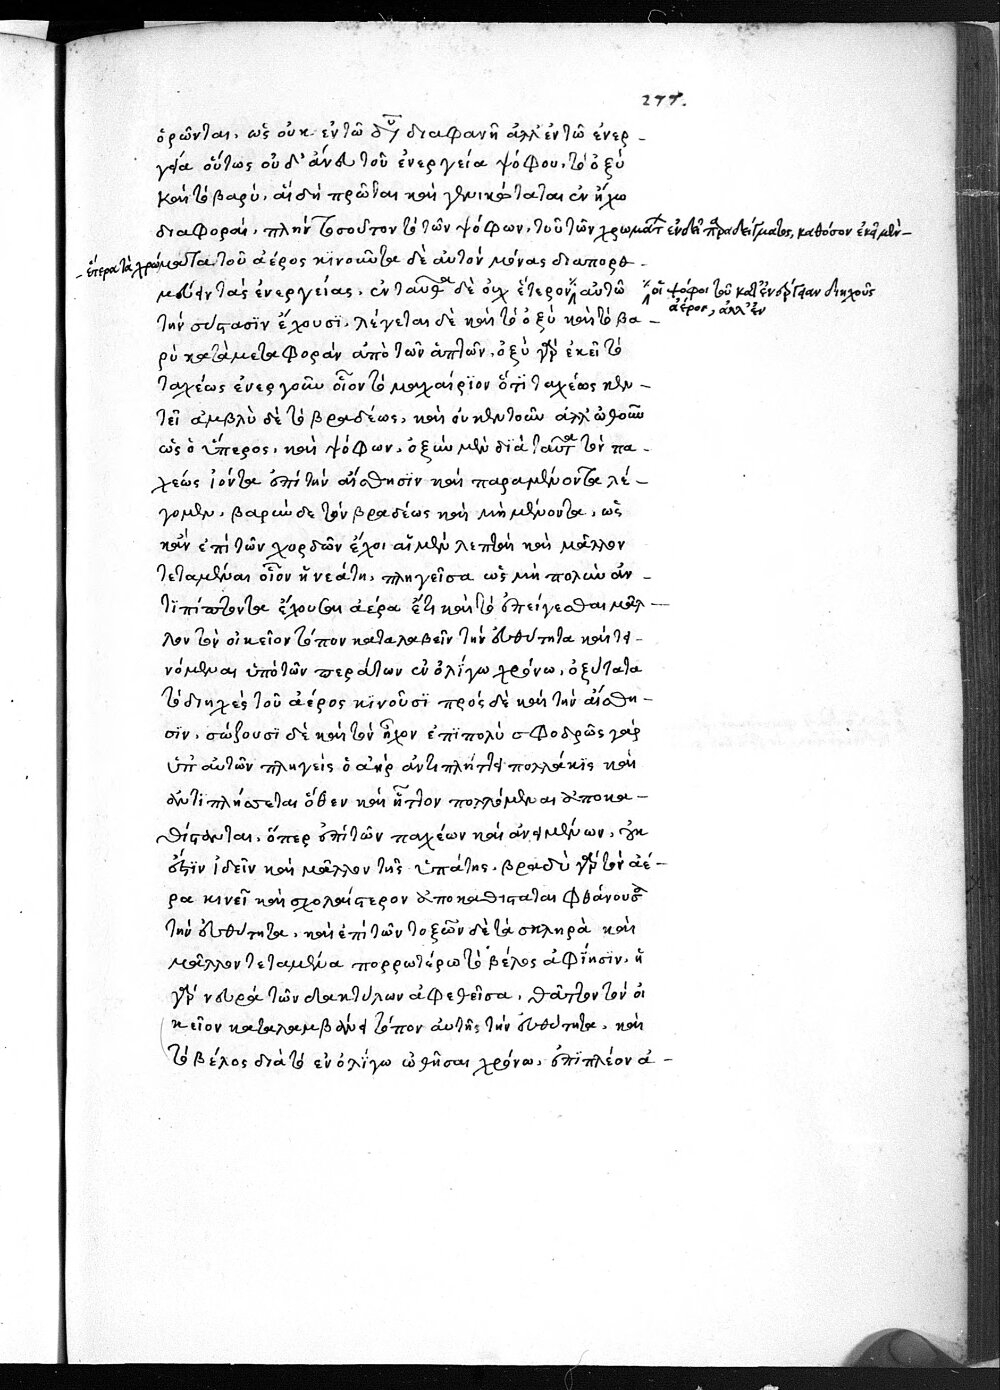 277.
ὁρῶνται, ὡς οὐκ ἐν τῶ διαφανῆ ἀλλ' ἐν τῶ ἐνερ-
γεία οὕτως οὐδ' ἄνευ τοῦ ἐνεργεία ψόφου, τὸ ὀξὺ
καὶ τὸ βαρὺ, αἱ δὴ πρῶται καὶ γενικώταται ἐν ἤχω
διαφοραὶ, πλὴν τοσοῦτον τὸ τῶν ψόφων, τοῦ τῶν χρωμάτ ἐνδεῖ παραδείγματος, καθόσον ἐκεῖ μὲν-
-ἕτερα τὰ χρώματα τοῦ ἀέρος κινοῦντα δὲ αὐτὸν μόνας διαπορθ-
μεύειν τὰς ἐνεργείας, ἐνταῦθα δὲ οὐχ ἕτερον αὐτῶ οἱ ψόφοι τοῦ διηχοῦς
ἀέρος, ἀλλ' ἐν
τὴν σύστασϊν ἔχουσϊ, λέγεται δὲ καὶ τὸ ὀξὺ καὶ τὸ βα-
ρὺ κατὰ μεταφορὰν ἀπὸ τῶν ἁπτῶν, ὀξὺ γὰρ ἐκεῖ τὸ
ταχέως ἐνεργοῦν οἷον τὸ μαχαίρϊον ὅτϊ ταχέως κεν-
τεῖ ἀμβλὺ δὲ τὸ βραδέως, καὶ οὐ κεντοῦν ἀλλ' ὠθοῦν
ὡς ὁ ὕπερος, καὶ ψόφων, ὀξὺν μὲν δϊὰ ταῦτα τὸν τα-
χέως ἰόντα ἐπὶ τὴν αἴσθησϊν καὶ παραμένοντα λέ-
γομεν, βαρὺν δε τὸν βραδέως καὶ μὴ μένοντα, ὡς
κἂν ἐπὶ τῶν χορδῶν ἔχοι αἱ μὲν λεπταὶ καὶ μᾶλλον
τεταμέναι οἷον ἡ νεάτη, πληγεῖσα ὡς μὴ πολὺν ἀν-
τϊπίπτοντα ἔχουσαι ἀέρα ἔτι καὶ τὸ ἐπείγεσθαι μᾶλ-
λον τὸν οἰκεῖον τόπον καταλαβεῖν τὴν εὐθύτητα καὶ τει-
νόμεναι ὑπὸ τῶν περάτων ἐν ὀλίγω χρόνω, ὀξύτατα
τὸ διηχὲς τοῦ ἀέρος κϊνοῦσϊ πρὸς δὲ καὶ τὴν αἴσθη-
σϊν, σώζουσϊ δὲ καὶ τὸν ἦχον ἐπϊπολὺ σφοδρῶς γὰρ
ὑπ' αὐτῶν πληγεὶς ὁ ἀὴρ ἀντιπλήττει πολλάκϊς καὶ
ἀντϊπλήττεται ὅθεν καὶ ἧττον παλλόμεναι ἀποκα-
θίστανται, ὅπερ ἐπὶ τῶν παχέων καὶ ἀνειμένων, οὐκ
ἔστϊν ἰδεῖν καὶ μᾶλλον τῆς ὑπάτης, βραδὺ γὰρ τὸν ἀέ-
ρα κινεῖ καὶ σχολαίτερον ἀποκαθίσταται φθάνουσα
τὴν εὐθύτητα, καὶ ἐπὶ τῶν τοξῶν δὲ τὰ σκληρὰ καὶ
μᾶλλον τεταμένα πορρωτέρω τὸ βέλος ἀφΐησϊν, ἡ
γὰρ νευρὰ τῶν δακτύλων ἀφεθεῖσα, θᾶττον τὸν οἰ
κεῖον καταλαμβάνει τόπον αὐτῆς τὴν εὐθύτητα, καὶ
τὸ βέλος διὰ τὸ ἐν ὀλίγω ὠθῆσαι χρόνω, ἐπϊπλέον ἀ-